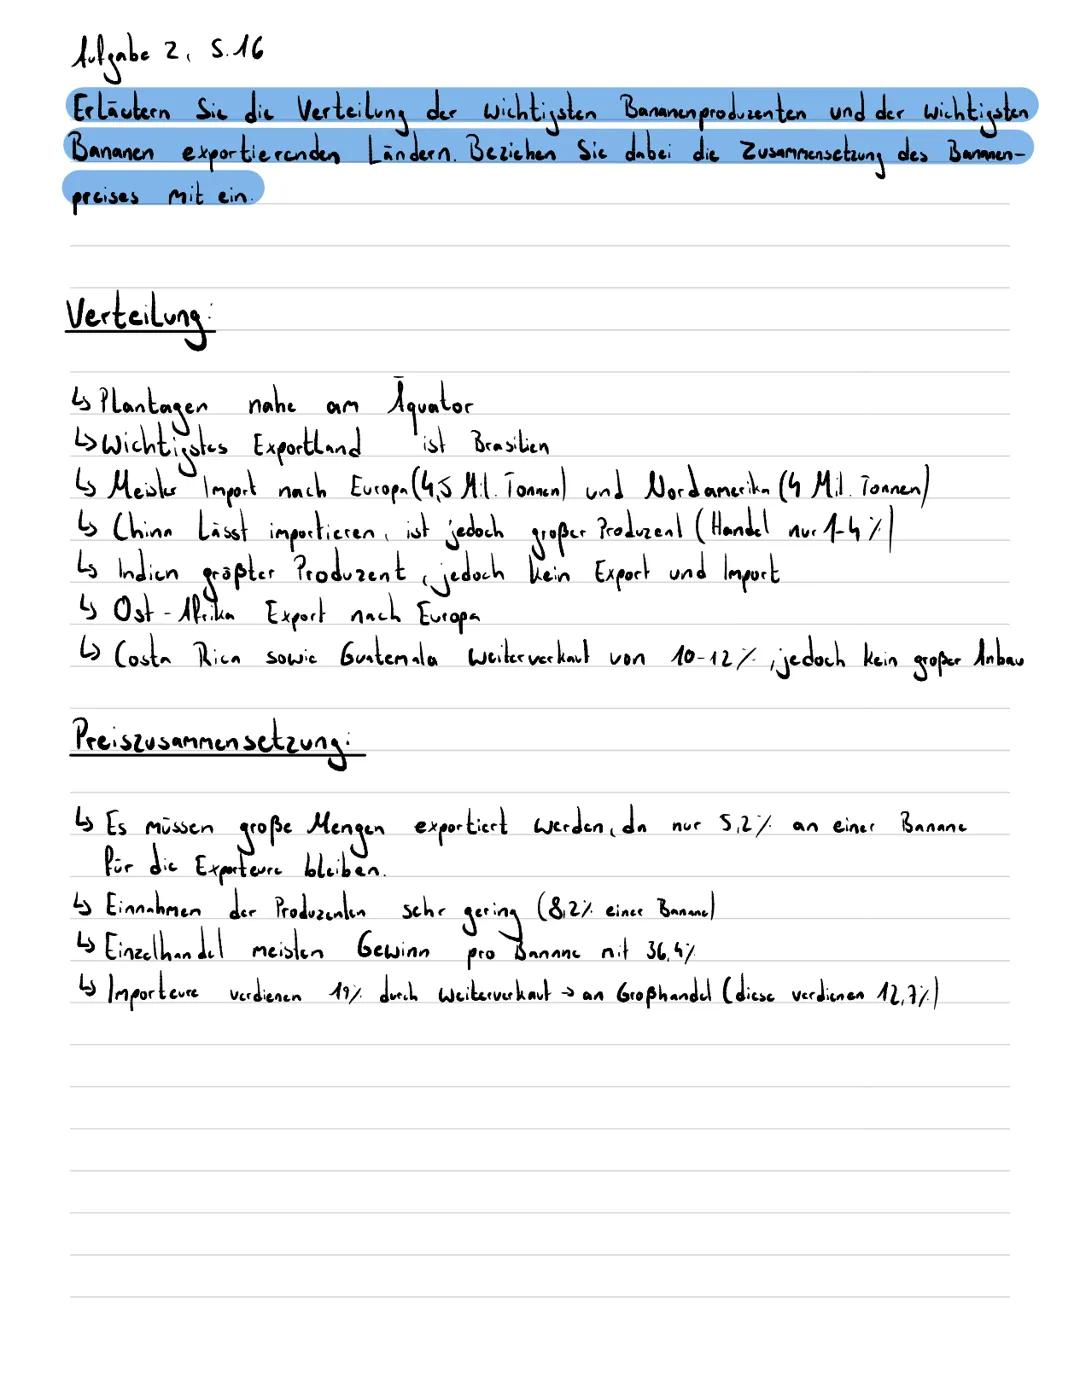 Aufgabe 2, S.16
Erläutern Sie die Verteilung der wichtigsten Bananenproduzenten und der wichtigsten
Bananen exportierenden Ländern. Beziehen Sie dabei die Zusammensetzung des Bananen-
preises mit ein.
Verteilung:
↳ Plantagen nahe am Äquator
↳ Wichtigstes Exportland ist Brasilien
↳ Meister Import nach Europa (4,5 Mil. Tonnen) und Nordamerika (4 Mil. Tonnen)
↳ China lässt importieren, ist jedoch großer Produzent (Handel nur 1-4%)
↳ Indien größter Produzent, jedoch kein Export und Import
↳ Ost-Afrika Export nach Europa
↳ Costa Rica sowie Guatemala Weiterverkauf von 10-12%, jedoch kein großer Anbau
Preiszusammensetzung:
↳ Es müssen große Mengen exportiert werden, da nur 5,2% an einer Banane
für die Exporteure bleiben.
↳ Einnahmen der Produzenten sehr gering (8,2% einer Banane)
↳ Einzelhandel meisten Gewinn pro Banane mit 36,4%
↳ Importeure verdienen 19% durch Weiterverkauf → an Großhandel (diese verdienen 12,7%)